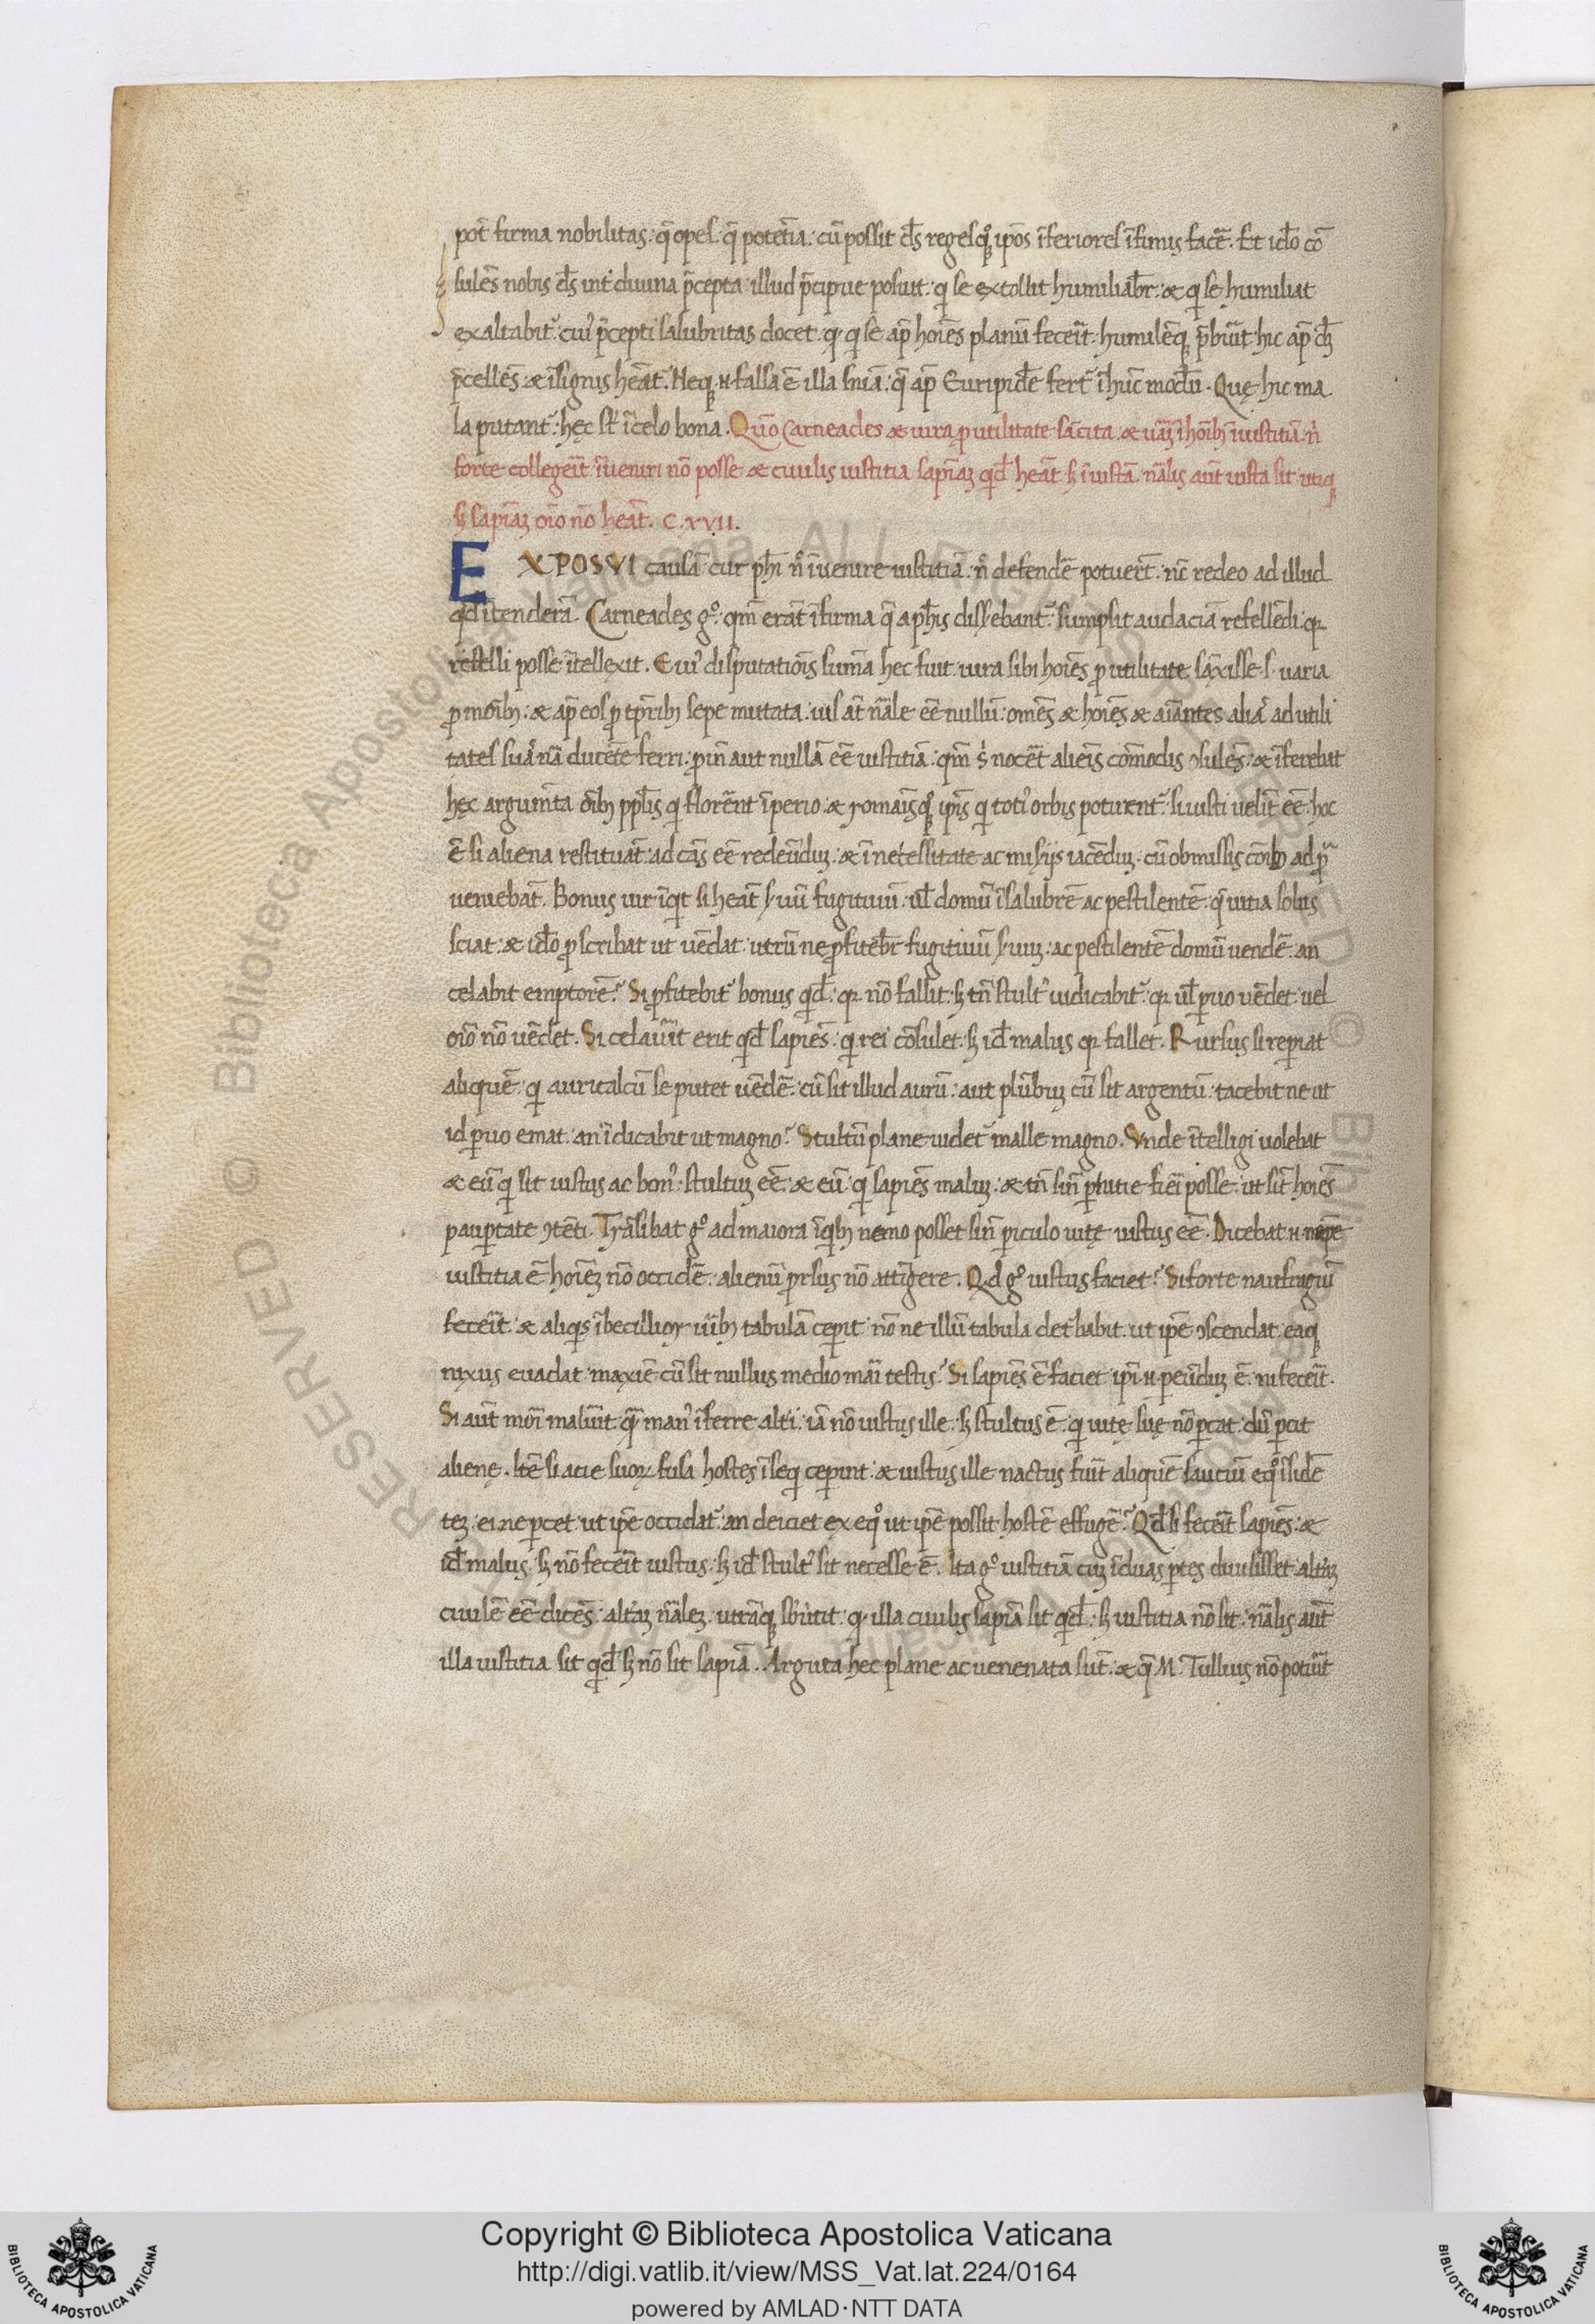 pot̄ firma nobilitas. q̄ opes. q̄ potētia. cū possit d̄s regesq; ip̄os īferiores īfimis facē. Et id̄o cō
sulēs nobis d̄s int̄ diuina p̄cepta illud p̄cipue posuit. qi se extollit humiliabr̄. & qi se humiliat
exaltabit̄. cui᾽ p̄cepti salubritas docet. ꝙ qi se ap̄ hoīes planū fecerit. humilēq; p̄buīt. hic ap̄ d̄m
p̄cellēs & īsignis heat̄. Neq; n falsa ē illa sn̄ia. q̄ ap̄ Euripidē fert̄ ī hūc modū. Quę hic ma
la putant̄. hęc st̄ ī celo bona. Quō Carneades & iura ꝑ utilitate sācita. & uāȝ ī hoīb; iustitiā. n̄
forte collegeīt īueniri nō posse & ciuilis iustitia sapīaȝ qd̄ heāt sȝ iniustā. nālis aūt iusta sit utiq;
sȝ sapīaȝ oīo nō heāt. C. XVII.
EXPOSVI causā cur ph̄i n̄ īuenire iustitiā. n̄ defendē potuerīt. nc̄ redeo ad illud
qd̄ ītenderā. Carneades gͦ. qm̄ erāt īfirma q̄ a ph̄is dissebant̄. sumpsit audaciā refellēdi. qꝛ
refelli posse ītellexit. Eui᾽ disputatiōis sum̄a hec fuit. iura sibi hoīes ꝑ utilitate sāxisse. s. uaria
ꝑ morib;. & ap̄ eos ꝑ tp̄rib; sepe mutata. ius āt nāle eē nullū. omēs & hoīes & aīantes aliās ad utili
tates suās nā ducēte ferri. ꝓīn aut nullā eē iustitiā. qm̄ s᾽ nocēt alieīs cōmodis ɔsulēs. & īferebat
hęc argum̄ta. oīb; ppl̄is qi florēnt īperio. & romaīsq; ip̄is qi toti᾽ orbis potirent̄. si iusti uelīt eē. hoc
ē si aliena restituāt. ad cās eē redeūduȝ. & ī necessitate ac misijs iacēduȝ. cū obmissis cōīb; ad pp̄
ueniebāt. Bonus uir īqit si heāt suū fugitiuū. ul̄ domū īsalubrē ac pestilentē. q̄ uitia solus
sciat. & id̄o ꝓscribat ut uēdat. utrū ne ꝓfitebr̄ fugitiuū suuȝ. ac pestilentē domū uendē. an
celabit emptorē? Si ꝓfitebit̄ bonus qd̄. qꝛ nō fallit. sȝ tn̄ stult᾽ iudicabit̄. qꝛ ul̄ ꝑuo uēdet. uel
oīo nō uēdet. Si celauīt erit qd̄ sapiēs. qi rei cōsulet. sȝ id̄ malus qꝛ fallet. Rursus si reꝑiat
aliquē. qi auricalcū se putet uēdē. cū sit illud aurū. aut plūbuȝ cū sit argentū. tacebit ne ut
id ꝑuo emat. an īdicabit ut magno? Stultū plane uidet̄ malle magno. Vnde ītelligi uolebat
& eū qi sit iustus ac bon᾽. stultuȝ eē. & eū qi sapiēs maluȝ. & tn̄ sin̄ ꝑnitie fieī posse. ut sīt hoīes
pauꝑtate ɔtēti. Trāsibat gͦ ad maiora īqib; nemo posset sin̄ ꝑiculo uitę iustus eē. Dicebat n nēpe
iustitia ē hoīeȝ nō occidē. alienū ꝓrsus nō attīgere. Qd gͦ iustus faciet? Si forte naufragiū
feceīt. & aliqis ībecillior uīib; tabulā ceꝑit. nō ne illū tabula deturbabit. ut ip̄e ɔscendat. eaq;
nixus euadat. maxīe cū sit nullus medio maī testis? Si sapiēs ē faciet. ip̄i n ꝑeūduȝ ē. ni feceīt.
Si aūt moī maluīt. qm̄ man᾽ īferre alt̄i. iā nō iustus ille. sȝ stultus ē. qi uitę suę nō ꝑcat. dū ꝑcit
alienę. Itē si acie suoꝝ fusa hostes īseq ceꝑint. & iustus ille nactus fuīt aliquē sauciū eqͦ īsidē
teȝ. ei ne ꝑcet. ut ip̄e occidat̄. an deiciet ex eqͦ ut ip̄e possit hostē effugē? Qd̄ si feceīt sapiēs. &
id̄ malus. sȝ nō feceīt iustus. sȝ id̄ stult᾽ sit necesse ē. Ita gͦ iustitiā cuȝ ī duas ꝑtes diuisisset. alt̄aȝ
ciuilē eē dicēs. alt̄aȝ nāleȝ. utrāq; sbūtit. ꝙ illa ciuilis sapīa sit qd̄. sȝ iustitia nō sit. nālis aūt
illa iustitia sit qd̄ sȝ nō sit sapīa. Arguta hec plane ac uenenata sūt. & q̄ M. Tullius nō potuīt
Copyright © Biblioteca Apostolica Vaticana
http://digi.vatlib.it/view/MSS_Vat.lat.224/0164
powered by AMLAD·NTT DATA
BIBLIOTECA APOSTOLICA VATICANA
BIBLIOTECA APOSTOLICA VATICANA